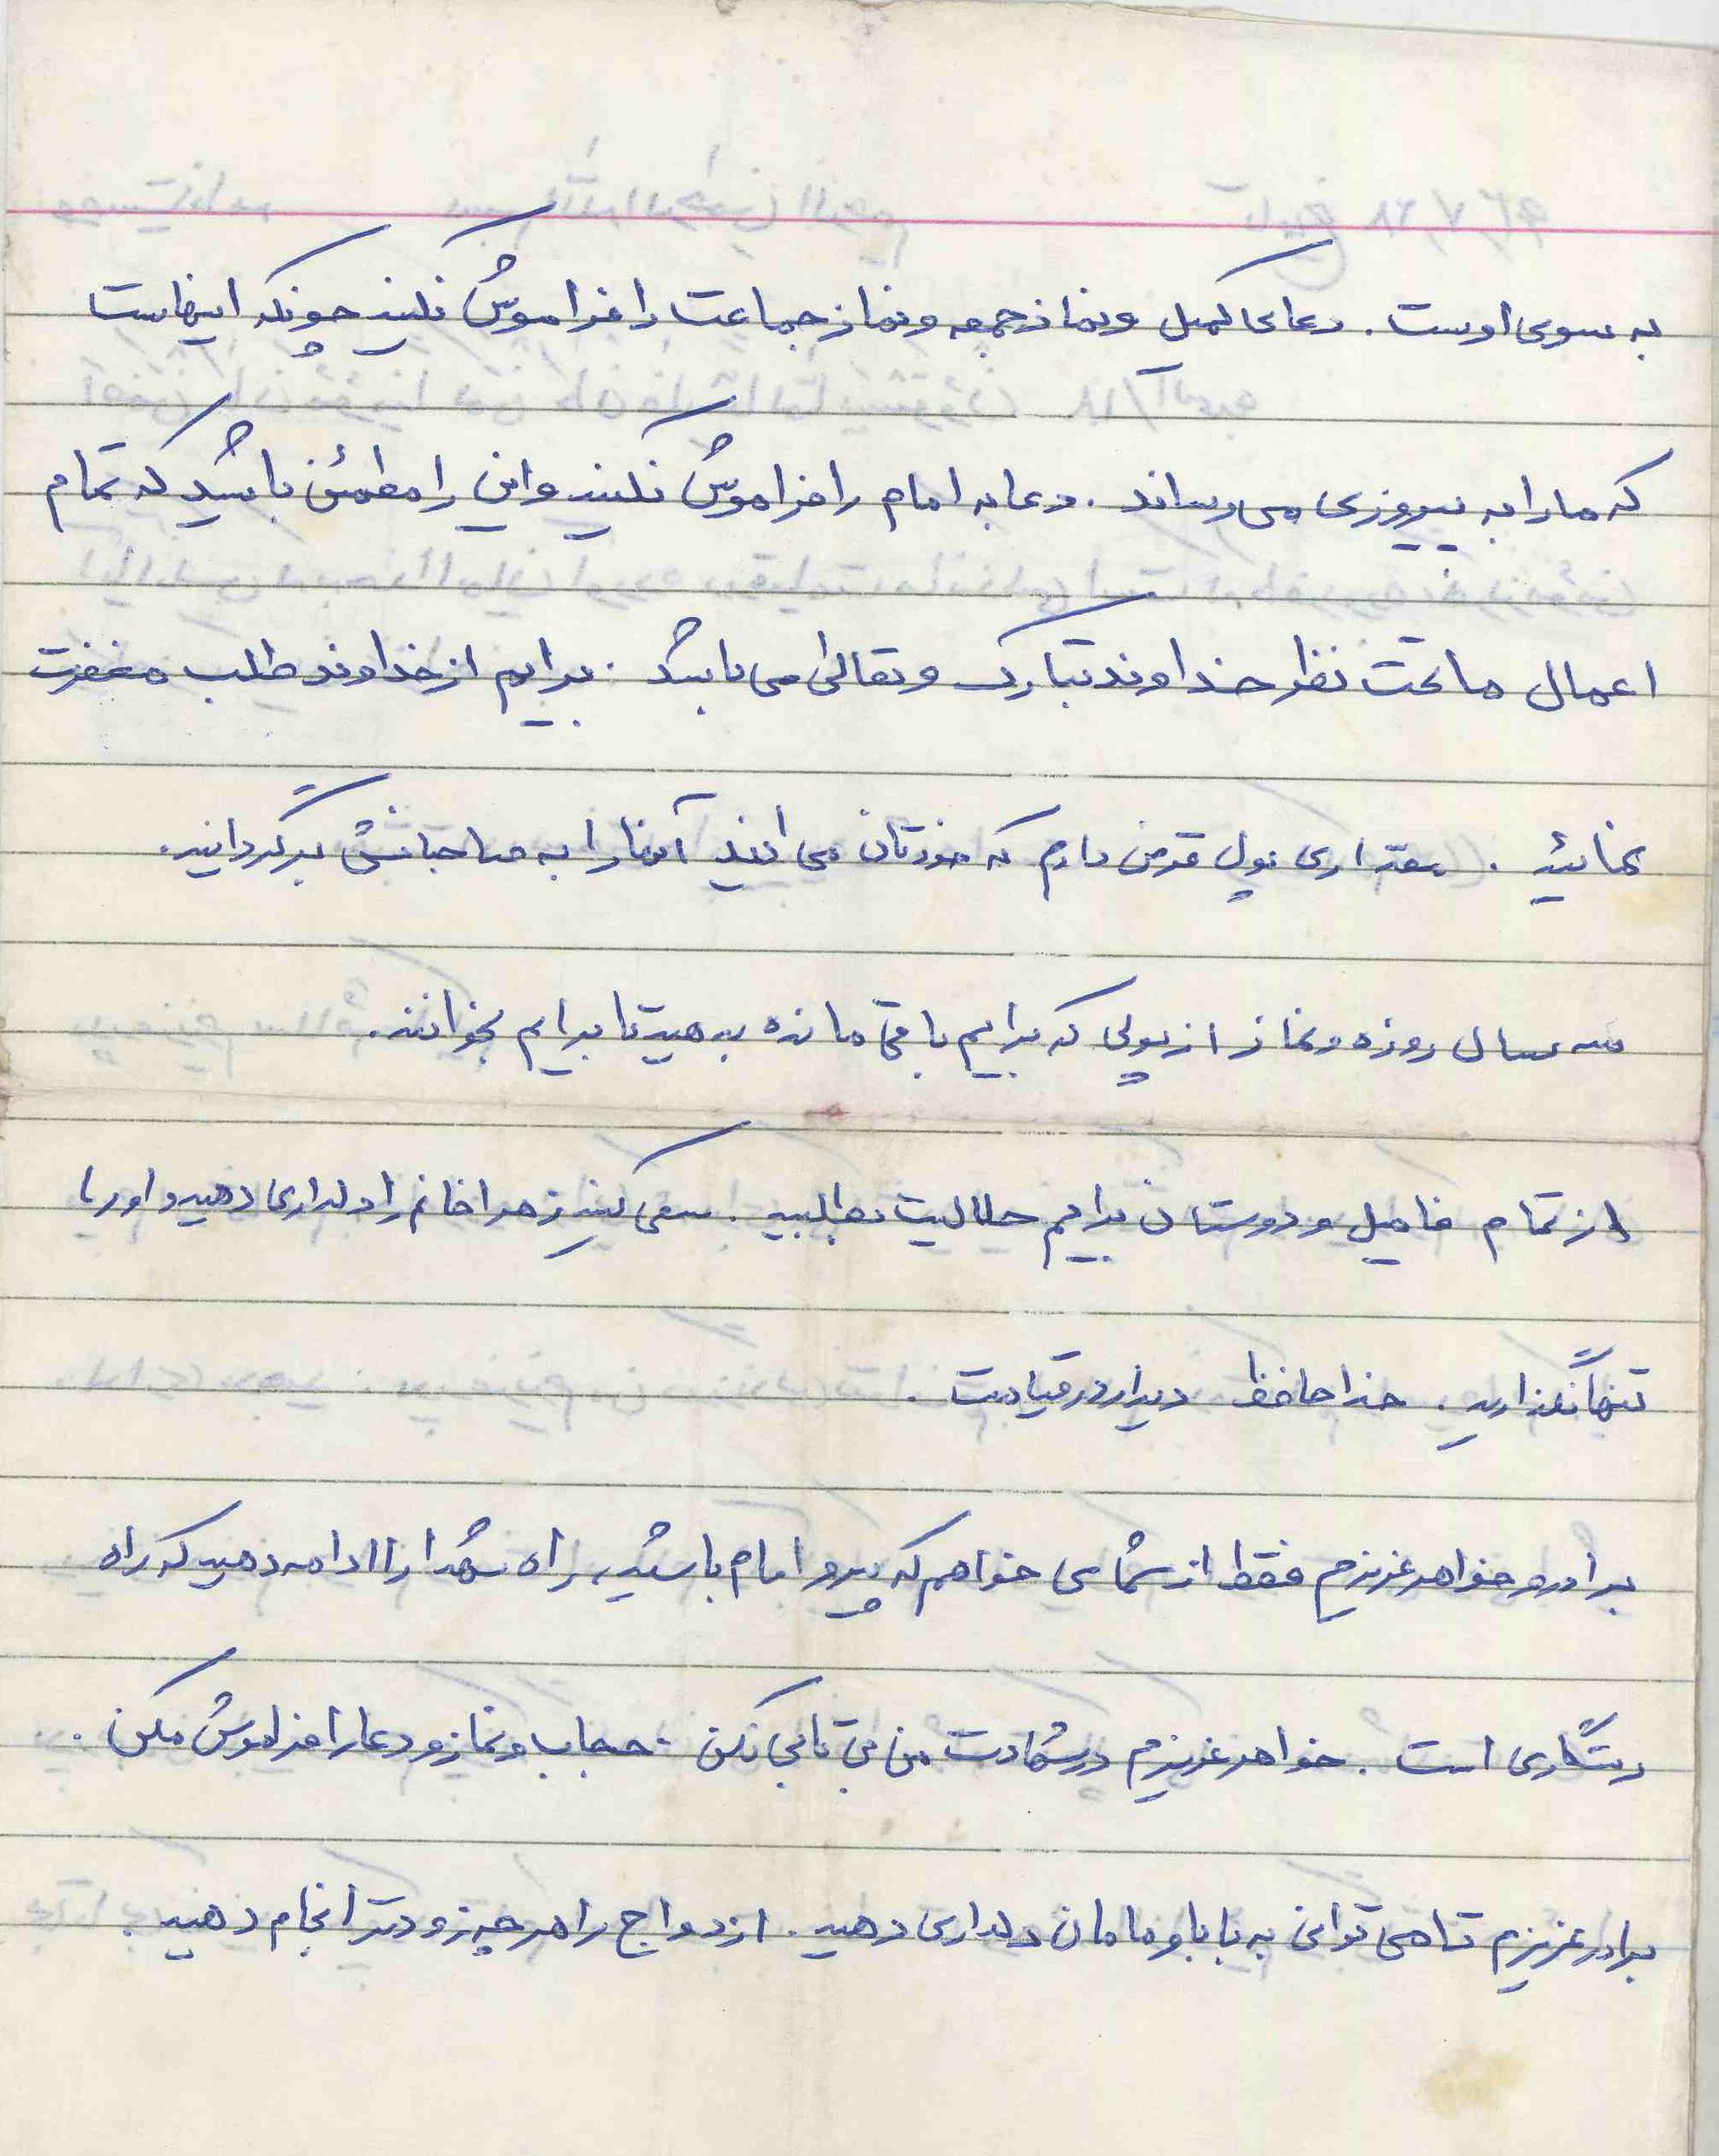 به سوی اوست. دعای کمیل ونماز جمعه ونماز جماعت را فراموش نکنید چونکه اینهاست
که ما را به پیروزی می رساند. دعا به امام را فراموش نکنید واین را مطمئن باشید که تمام
اعمال ما تحت نظر خداوند تبارک وتعالی می باشد. برایم از خداوند طلب مغفرت
نمائید. مقداری پول قرض دارم که خودتان می دانید آنها را به صاحبانش برگردانید.
سه سال روزه ونماز از پولی که برایم باقی مانده بدهید تا برایم بخوانند.
از تمام فامیل و دوستان برایم حلالیت بطلبید. سعی کنید زهرا خانم را دلداری دهید و او را
تنها نگذارید. خداحافظ دیدار در قیامت.
برادر و خواهر عزیزم فقط از شما می خواهم که پیرو امام باشید، راه شهدا را ادامه دهید که راه
رستگاری است. خواهر عزیزم در شهادت من بی تابی نکن. حجاب ونماز و دعا را فراموش مکن.
برادر عزیزم تا می توانی به بابا و مامان دلداری دهید. ازدواج را هر چه زودتر انجام دهید.